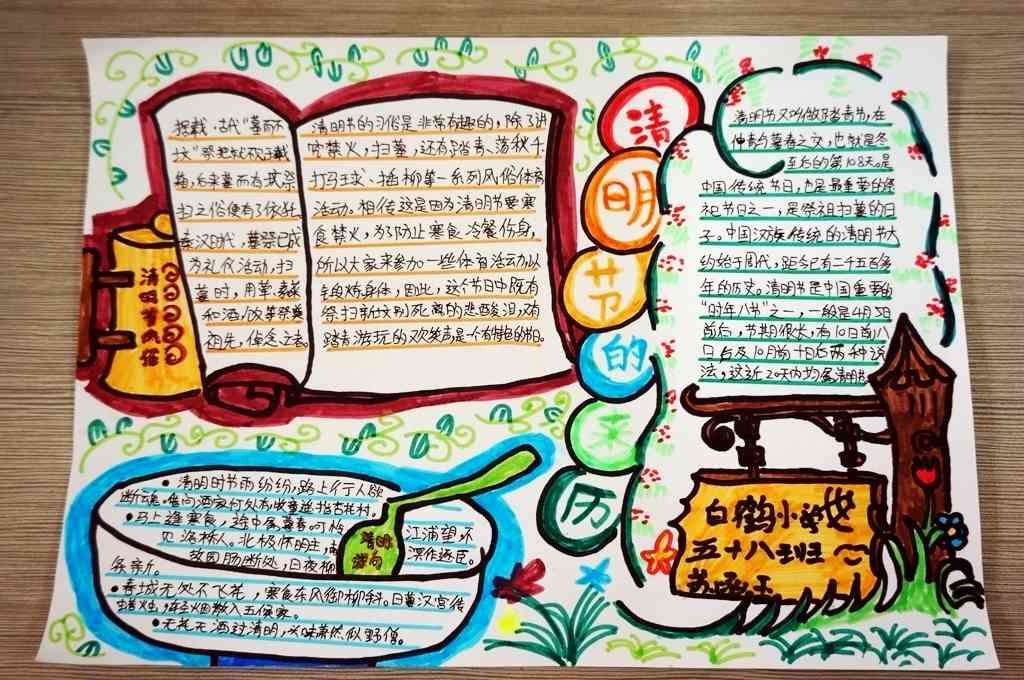 据载,古代"墓而不
坟"祭祀就不
后来墓而有坟,祭
扫之俗便有了依托。
秦汉时代,墓祭已成
为礼仪活动,扫
墓时,用
和酒/饭菜祭奠
祖先,悼念
清明节的习俗是非常有趣的,除了讲
究禁火,扫墓,还有踏青、荡秋千
打马球、插柳等一系列风俗体育
活动。相传这是因为清明节要寒
食禁火,为了防止寒食冷餐伤身,
所以大家来参加一些体育活动以
锻炼身体,因此,这个节日中既有
祭扫新坟别死离的悲酸泪,又有
踏青游玩的欢笑声是一个有特色的节日。
清明节风俗
清明节的来历
清明节又叫做踏青节,在
仲春与暮春之交,也就是冬
至后的第108天。是
中国传统节日,也是最重要的祭
祀节日之一,是祭祖扫墓的日
子。中国汉族传统的清明节大
约始于周代,距今已有二千五百多
年的历史。清明节是中国重要的
"时年八节"之一,一般是4月5日
前后,节期很长,有10日前八
日后及10日前十日后两种说
法,这近20天内均属清明节。
•清明时节雨纷纷,路上行人欲
断魂。借问酒家何处有牧童遥指杏花村。
•马上逢寒食,途中属暮春。可怜
江浦望,不
见洛桥人。北极怀明主,南
溟作逐臣。
故园肠断处,日夜柳
条新。
•春城无处不飞花,寒食东风御柳斜。日暮汉宫传
蜡烛,轻烟散入五侯家。
•无花无酒过清明,兴味萧然似野僧。
清明
诗句
白鹤小学
五十八班